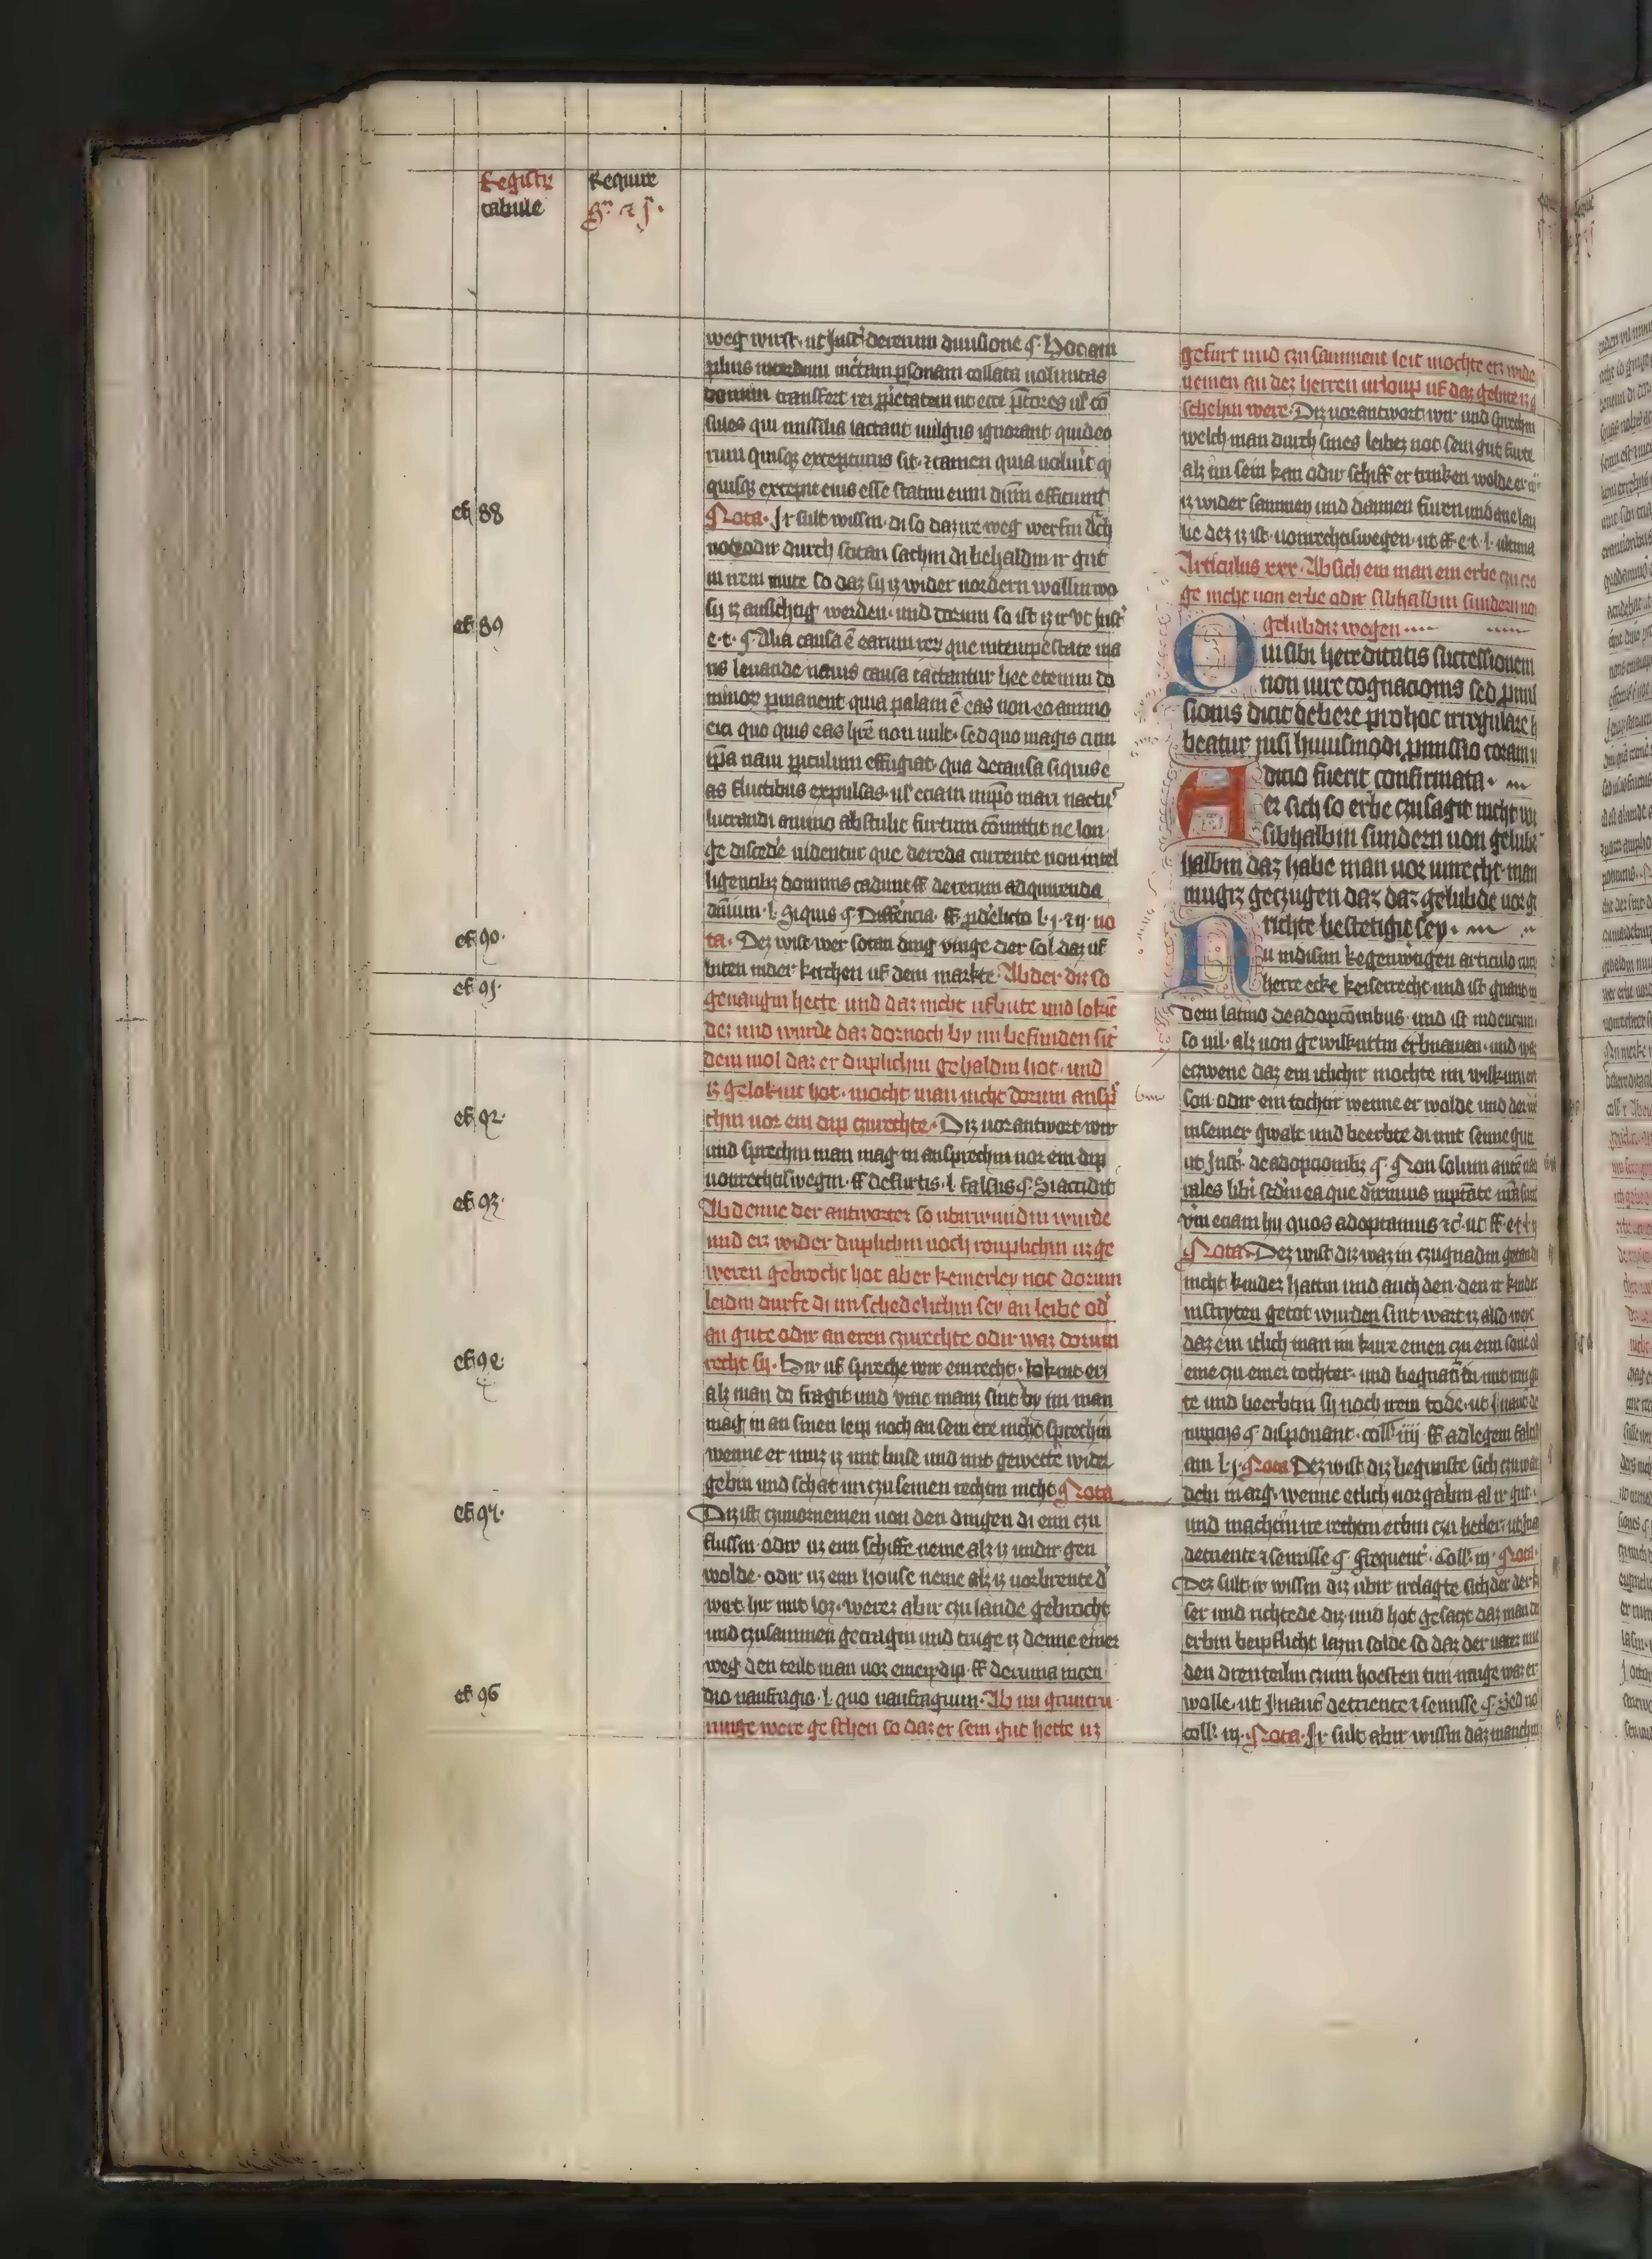 Registr
tabule
Require
weg wirft. ut Inst. de rerum diuisione §. Hoc am
plius interdum in certam personam collata uoluntas
domini transfert rei proprietatem ut ecce pretores uel con
sules qui missilia iactant uulgus ignorant quid eo
rum quisque excepturus sit. et tamen quia uolunt quod
quisque exceperit eius esse statim eum dominum efficiunt
ef 88
Nota. Ir sult wissin. di so daz ire weg werfin durch
not odir durch sotan sachin di behaldin ir gut
in irem mute so daz sy iz wider uordern wollin wo
sy iz ansichtig werden. und dorum so ist iz ir Vt Inst.
ef 89
e. t. §. Alia causa est earum rerum que in tempestate ma
ris leuande nauis causa iactantur hec etenim do
minorum permanent quia palam est eas non eo animo
eici quo quis eas habere non uult. sed quo magis cum
ipsa naui periculum effugiat. qua de causa si quis e
as fluctibus expulsas. uel eciam in ipso mari nactus
lucrandi animo abstulit furtum committit ne lon
ge discedere uidentur que de reda currente non intel
ligentibus dominis cadunt ff. de rerum adquirenda
dominium. l. Siquis §. Differencia. ff. l. j. no
ef 90.
ta. Dez wist wer sotan ding vinge der sol daz uf
biten in der kirchen uf dem markte. Ab der diz so
ef 91.
genangin hette und daz nicht ufbute und lokente
dez und wurde daz dornoch by im befunden sit
dem mol daz er duplichin gehaldin hot. und
iz gelokint hot. mochte man nicht dorum anspre
ef 92.
chin uor ein dip czurechte. Diz uorantwort wir
und sprechin man mag in ansprechin uor ein dip
uonrechtiswegin. ff. de furtis. l. falsus §. Si accidit
ef 93.
Ab denne der antworter so ubirwundin wurde
und erz wider duplichin noch rouplichin uz ge
weren gebrocht hot aber keinerley not dorum
leidin durfe di im schedelichin sey an leibe odir
an gute odir an eren czurechte odir waz dorum
ef 94
recht sy. Hir uf spreche wir ein recht. lokent erz
alz man do fragit und vint manz sint by im man
mag in an sinen leip noch an sein ere nicht sprechin
wenne er muz iz mit buse und mit gewette wider
gebin und schat im czu seinen rechtin nicht Nota
ef 95.
Diz ist czuuornemen uon den dingen di enn czu
flussin. odir uz enn schiffe neme alz iz undir gen
wolde. odir uz enn house neme alz iz uorbrente der
wirt hir mit loz. werez abir czu lande gebrocht
und czusammen getragin und truge iz denne einer
weg den teilt man uor einen dip. ff. de ruina incen
ef 96
dio naufragio. l. quo naufragium. Ab nu gruntru
ringe were geschen so daz er sein gut hette uz
gefurt und czu samment leit mochte erz wide
nemen an dez herren urloup uf daz gebite iz g
schehin were. Diz uorantwort wir und sprechin
welch man durch sines leibez not sein gut furte
alz im sein kan odir schiff er trinken wolde er
iz wider sammen und dannen furen und ane lau
be dez iz ist. uonrechtiswegen. ut ff. e. t. l. ultima
Articulus xxx. Ab sich ein man ein erbe czu czo
ge nicht uon erbe odir sibhalbin sundern uon
gelubdiz wegen
Qui sibi hereditatis successionem
non iure cognacionis sed promi
sionis dicit debere pro hoc irregulare h
beatur nisi huiusmodi promissio coram iu
dicio fuerit confirmata.
Wer sich so erbe czusagit nicht uon
sibhalbin sundern uon gelub
halbin daz habe man uor unrecht. man
mugiz geczugen daz daz gelubde uor g
richte bestetigit sey.
Nu in disim kegenwigen articulo
herre ecke keiserrecht. und ist
dem latino de adopcionibus. und ist in deuczin
so uil. alz uon gewilkurtin erbnamen. und waz
eczwene daz ein iclichir mochte im wilkuren
son. odir ein tochtir wenne er wolde und der
in seiner gwalt und beerbte di mit seime gute
ut Inst. de adopcionibus §. Non solum autem natu
rales libri secundum ea que diximus in potestate nostra sunt
verum eciam hij quos adoptamus etc. ut ff. e. t. l. ij
Nota. Dez wist diz waz in czugnadin getan di
nicht kinder hattin und auch den. den ir kinder
in stryten getot wurden sint wart iz also
daz ein iclich man im kure einen czu enn sone od
eine czu einer tochter. und begnadin mit
te und beerbtin sy noch irem tode. ut In aut. de
nupcijs §. disponant. coll. iiij ff. ad legem falcid
iam l. j. Nota Dez wist diz begunste sich czuwan
deln in arg. wenne etlich uorgabin al ir gut.
und machtin ire rechtin erbin czu betler. ut In a
de triente et semisse §. frequent. Coll. iij. Nota.
Dez sult ir wissin diz ubir irclagte sich der kei
ser und richtede diz. und hot gesaczt daz man di
erbin beipflicht lazin solde so daz der uater nit
den dren teilin czum hoesten tun muge waz er
wolle. ut In aut. de triente et semisse §. Sed no
coll. iij. Nota. Ir sult abir wissin daz manchir